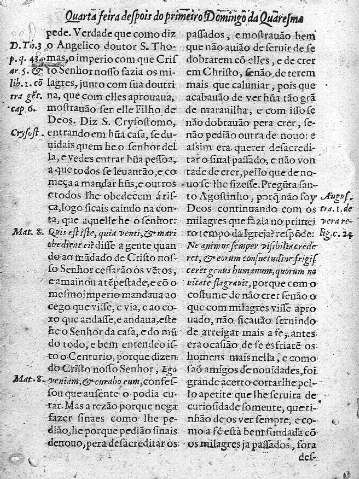 Quarta feira despois do primeiro Domingo da Quaresma
pede. Verdade que como diz
o Angelico doutor S. Tho-
mas, o imperio com que Cris-
to Senhor nosso fazia os mi-
lagres, junto com sua doutri
na, que com elles aprouaua,
mostrauão ser elle Filho de
Deos. Diz S. Crysostomo,
entrando em hũa casa, se du-
uidais quem he o senhor del
la, e vedes entrar hũa pessoa,
a que todos se leuantão, e co-
meça a mandar hũs, e outros
e todos lhe obedecem à ris-
ca, logo ficais caindo na con-
ta, que aquelle he o senhor.
Quis est iste, quia venti, & mari
obediunt ei? disse a gente quan
do ao mãdado de Cristo nos-
so Senhor cessarão os vẽtos,
e amainou a tẽpestade, e cõ o
mesmo imperio mandaua ao
cego que visse, e via, e ao co-
xo que andasse, e andaua, este
he o Senhor da casa, e do mũ
do todo, e bem entendeo is-
to o Centurio, porque dizen
do Cristo nosso Senhor, Ego
veniam, & curabo eum, confes-
sou que ausente o podia cu-
rar. Mas a rezão porque nega
fazer sinaes como lhe pe-
dião, he porque pedião sinais
de nouo, pera desacreditar os
D. Tho. 3
p. q. 43.
ar. 5. &
lib. 1. cõ
tra gẽt.
cap. 6.
Crysost.
Mat. 8.
Mat. 8.
passados, e mostrauão bem
que não auião de seruir de se
dobrarem cõ elles, e de crer
em Christo, senão, de terem
mais que caluniar, pois que
acabauão de ver hũa tão grã
de marauilha, e com isso se
não dobrauão pera crer, se-
não pedião outra de nouo: e
assim era querer desacredi-
tar o sinal passado, e não von
tade de crer, pello que de no-
uo se lhe fizesse. Pregũta san-
to Agostinho, porque não foy
Deos continuando com os
milagres que fazia no primei
ro tempo da Igreja? respõde:
Ne animus semper visibilia quæ-
reret, & eorum consuetudine frigis
ceret genus humanum, quorum no
uitate flagrauit, porque com o
costume de não crer senão o
que com milagres visse apro
uado, não ficauão seruindo
de arreigar mais a fè, antes
era ocasião de se esfriarẽ os
homens mais nella, e como
saõ amigos de nouidades, foi
grande acerto cortarlhe pel-
lo apetite que lhe seruira de
curiosidade somente, que ti-
nhão de os ver sempre, e co-
mo a fé està bem fundada cõ
os milagres ja passados, fora
des-
August.
tra. t. de
vera re-
lig. c. 24